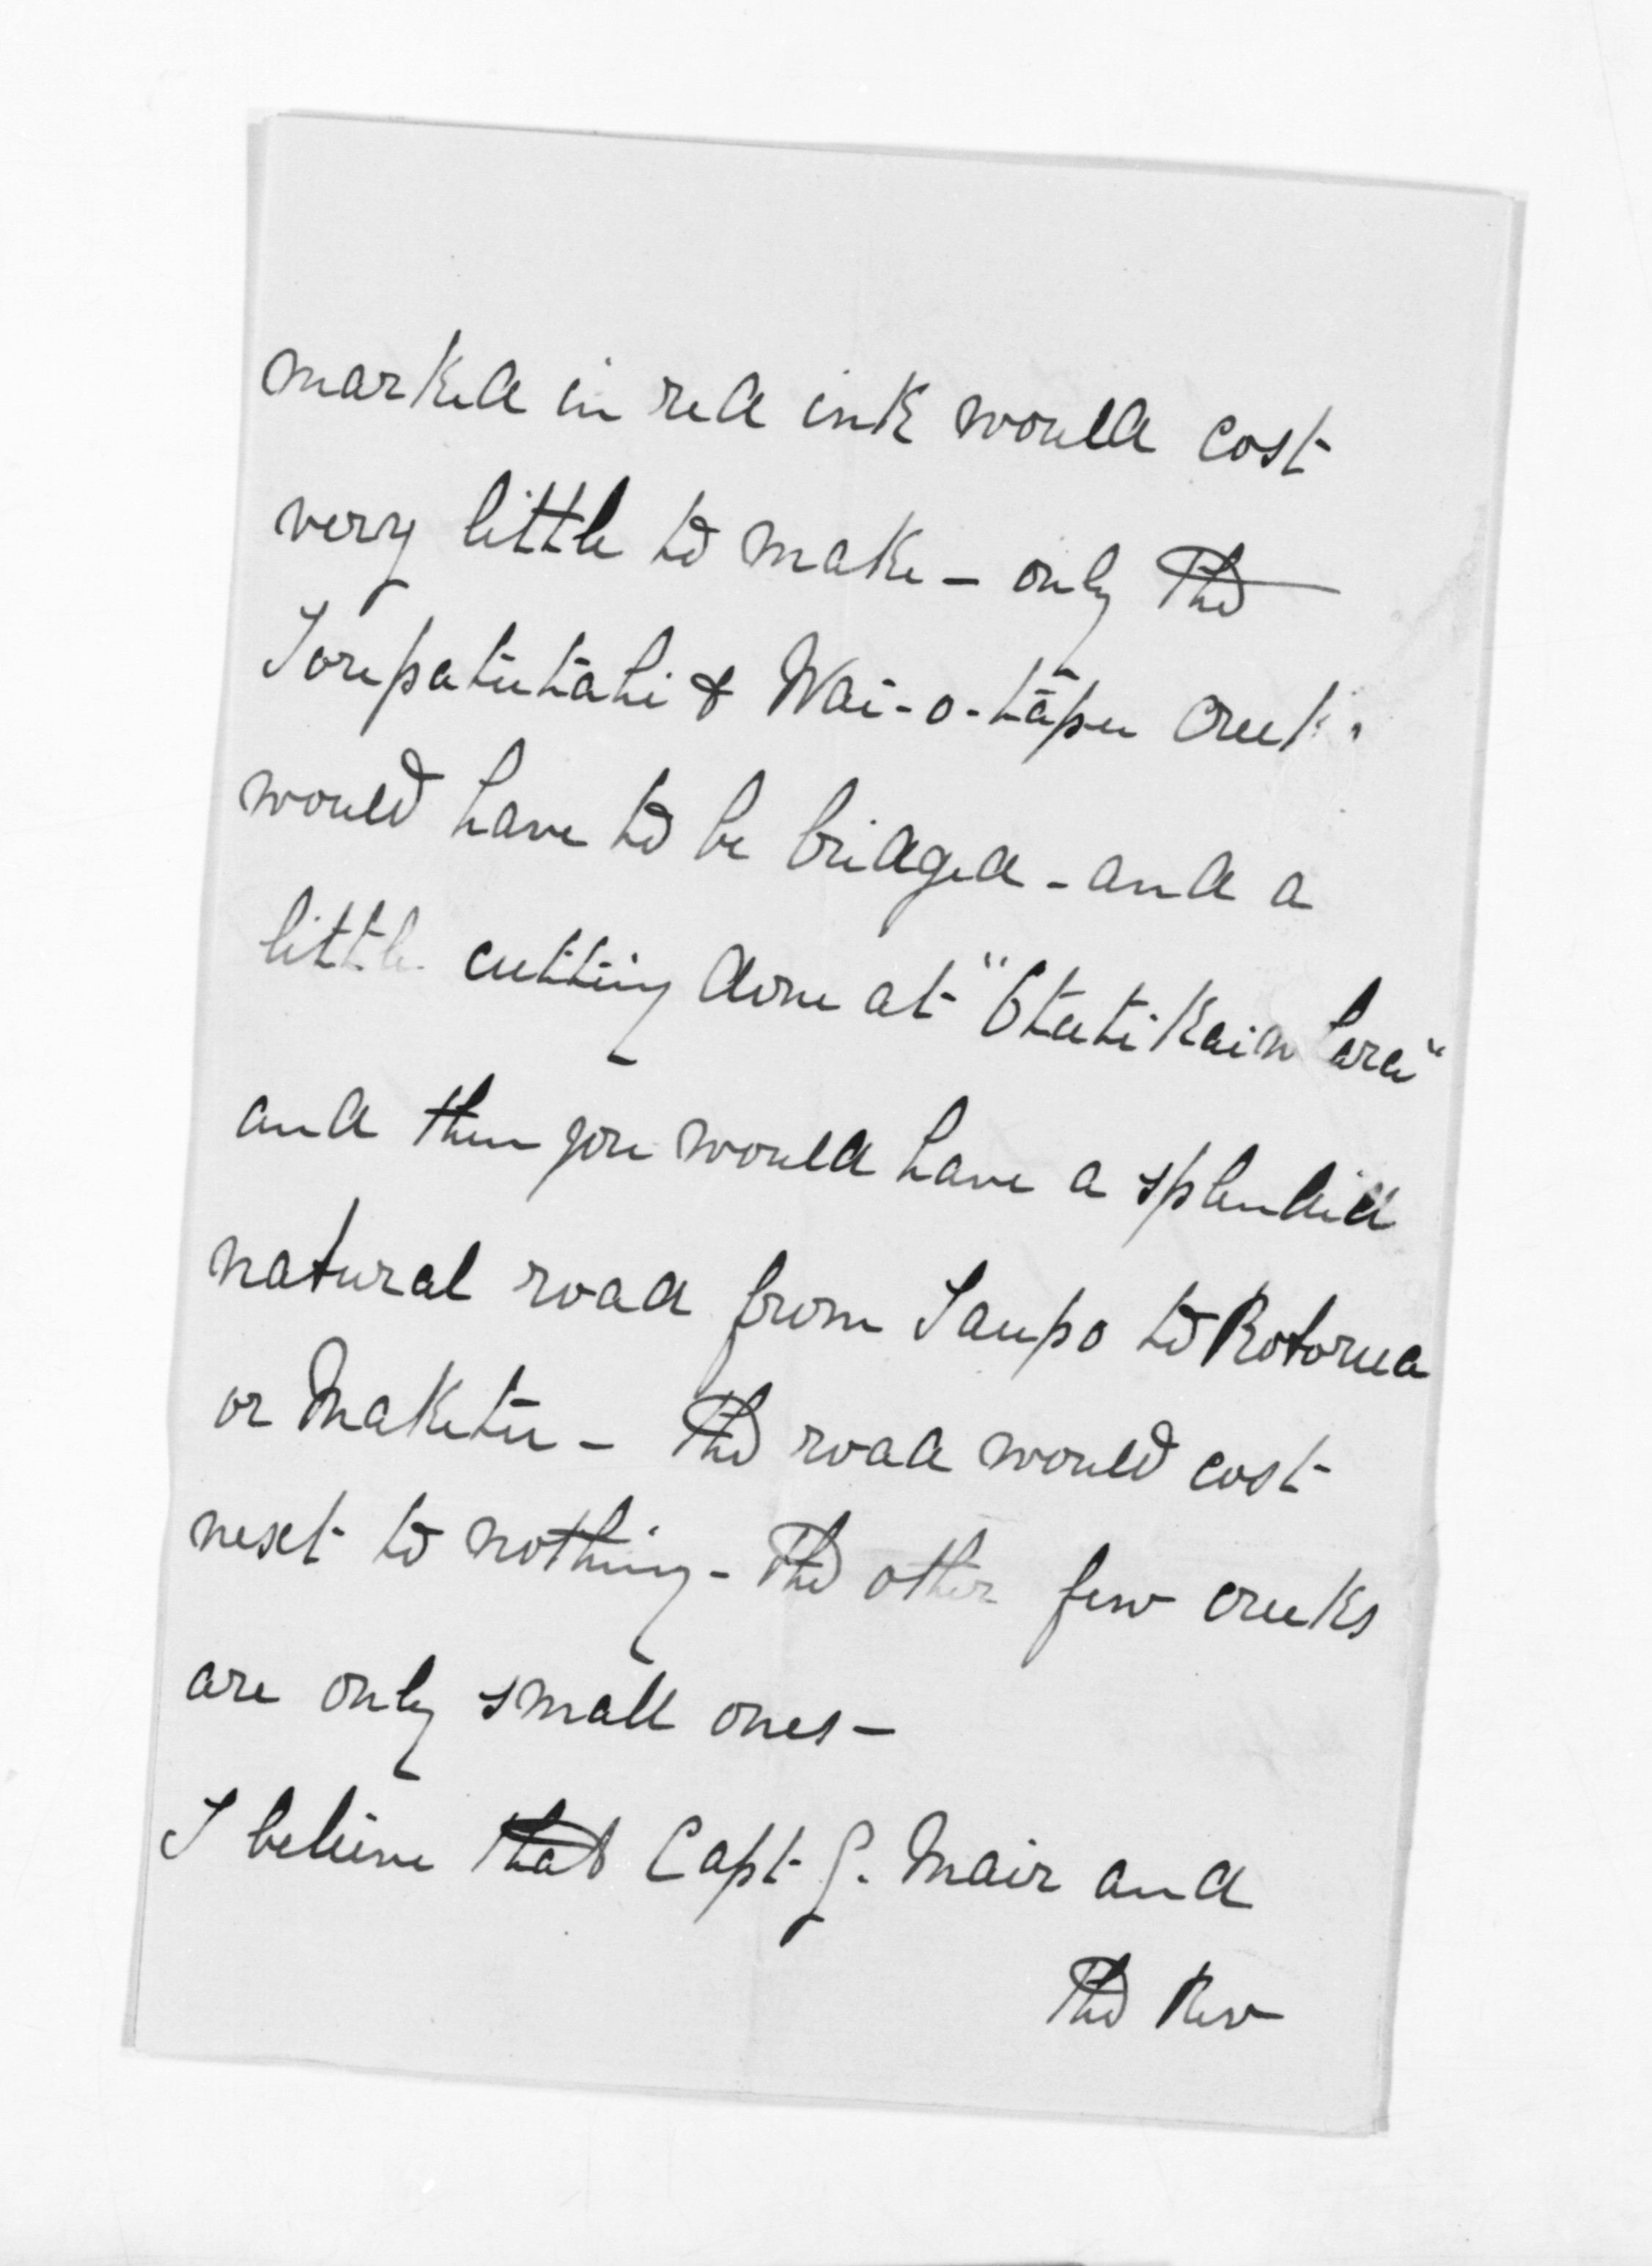 marked in red ink would cost
very little to make - only the
Torepatutahi & Wai-o-tapu Creeks
would have to be bridged - and a
little cutting done at
and then you would have a splendid
natural road from Taupo to Rotorua
or Maketu - The road would cost
next to nothing - The other few creeks
are only small ones -
I believe that Capt G. Mair and
The Rev